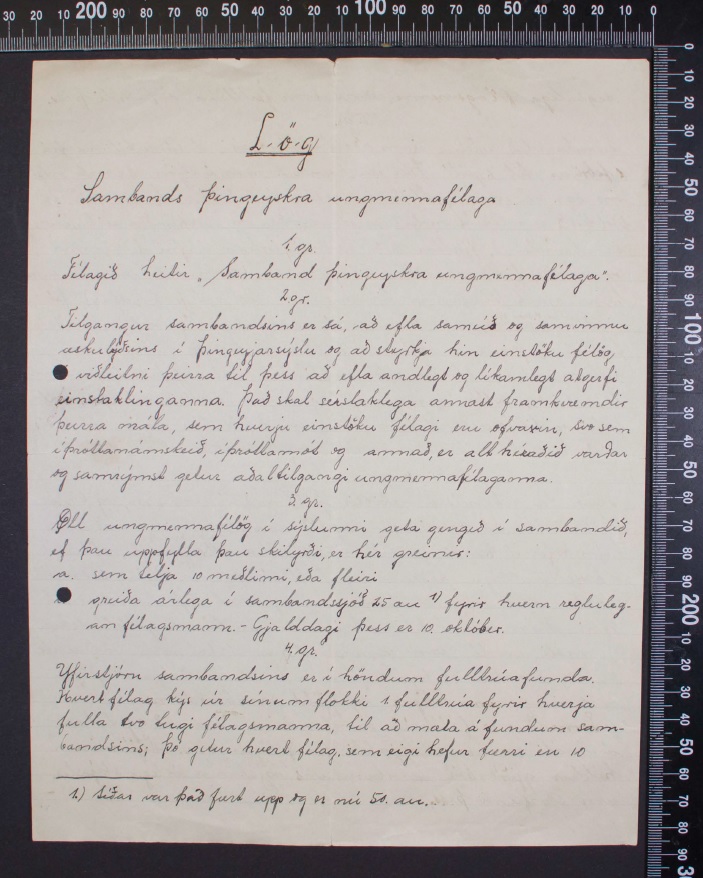 L-ö-g
Sambands þingeyskra ungmennafélaga
1. gr.
Félagið heitir „Samband þingeyskra ungmennafélaga".
2. gr.
Tilgangur sambandsins er sá, að efla sameið og samvinnu
æskulýðsins í Þingeyjarsýslu og að styrkja hin einstöku félög,
viðleitni þeirra til þess að efla andlegt og líkamlegt atgerfi
einstaklinganna. Það skal sérstaklega annast framkvæmdir
þeirra mála, sem hverju einstöku félagi eru ofvaxin, svo sem
íþróttanámskeið, íþróttamót og annað, er alt héraðið varðar
og samrýmst getur aðaltilgangi ungmennafélaganna.
3. gr.
Öll ungmennafélög í sýslunni geta gengið í sambandið,
ef þau uppfylla þau skilyrði, er hér greinir:
a. sem telja 10 meðlimi, eða fleiri
greiða árlega í sambandssjóð 25 au 1) fyrir hvern regluleg-
an félagsmann. - Gjalddagi þess er 10. október.
4. gr.
Yfirstjórn sambandsins er í höndum fulltrúafunda.
Hvert félag kýs úr sínum flokki 1 fulltrúa fyrir hverja
fulla tvo tugi félagsmanna, til að mæta á fundum sam-
bandsins; þó getur hvert félag, sem eigi hefur færri en 10
1.) Síðar var það fært upp og er nú 50. au.